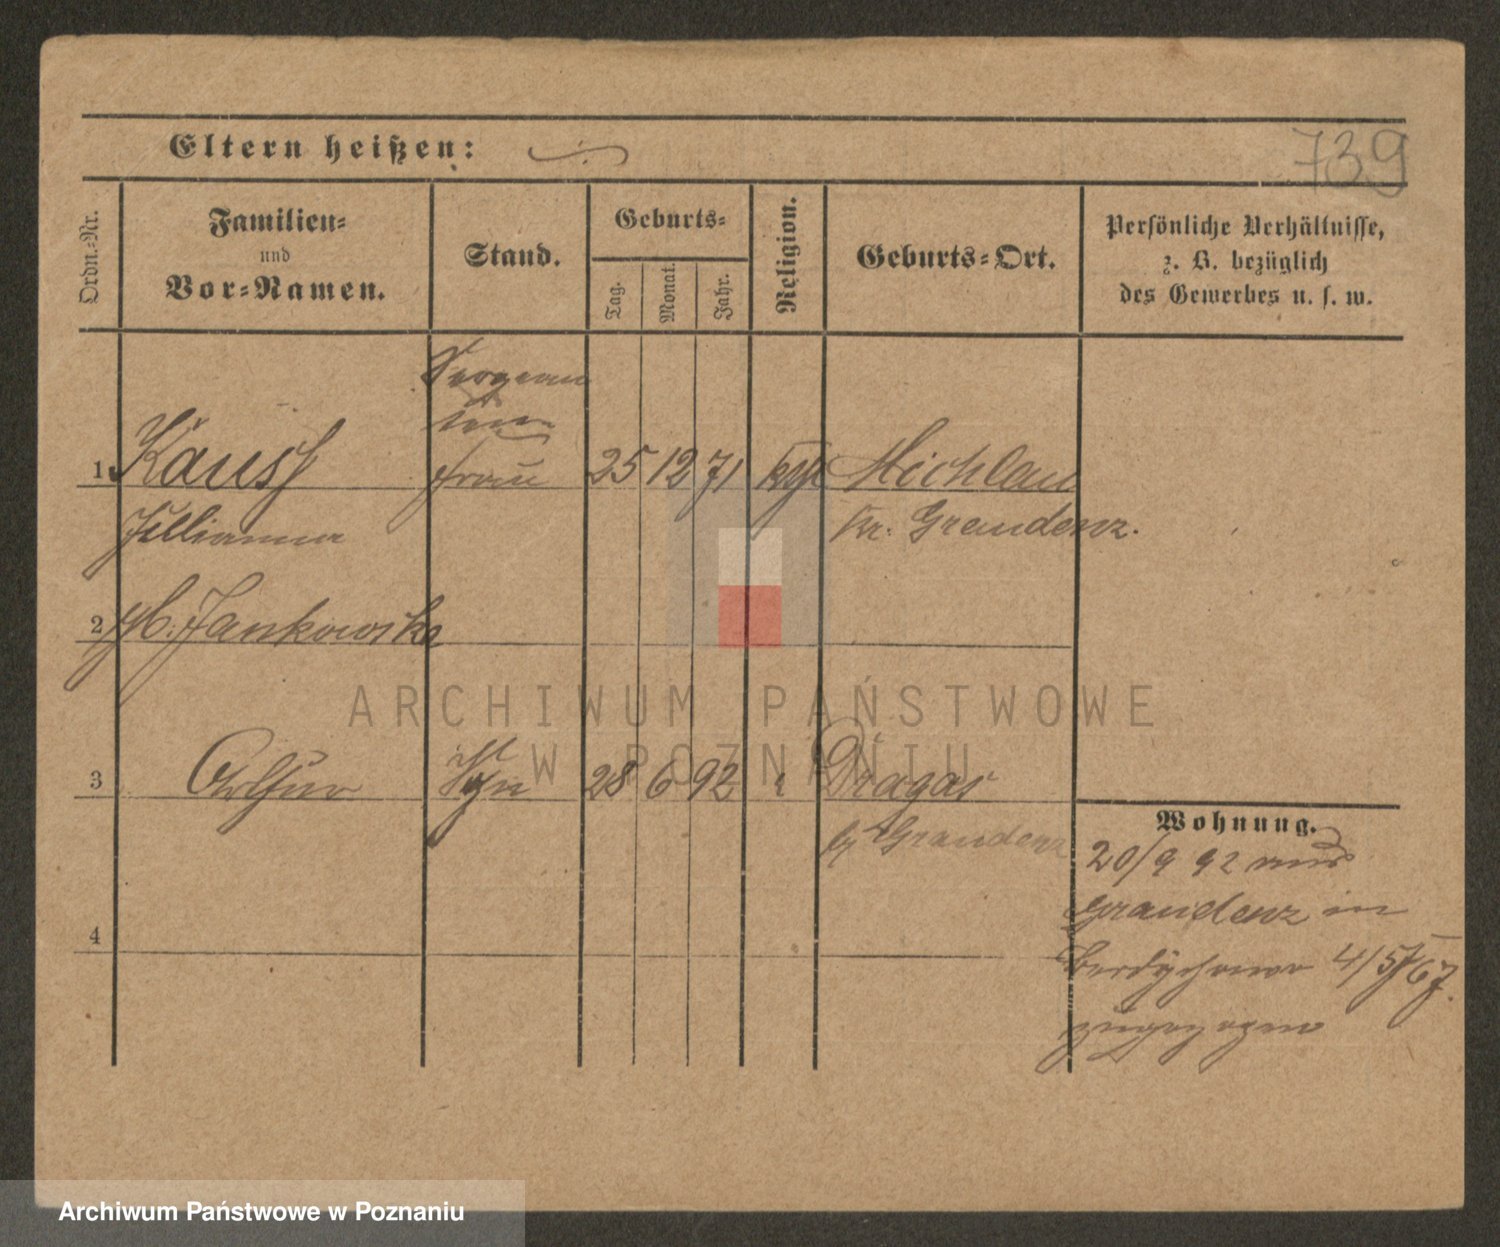 Eltern heißen:
739
Ordn.-Nr.
Familien-
und
Vor-Namen.
Stand.
Geburts-
Tag.
Monat.
Jahr.
Religion.
Geburts-Ort.
Persönliche Verhältnisse,
z. B. bezüglich
des Gewerbes u. s. w.
1 Kausch frau 25 12 71 Michlau
Kr. Graudenz.
2 Jankowska
3 Arthur 28 6 92 Dragas
Graudenz
4
Wohnung.
20/9 92 aus
Graudenz in
Berdychowo 4/5/67.
zugezogen
ARCHIWUM PAŃSTWOWE
W POZNANIU
Archiwum Państwowe w Poznaniu